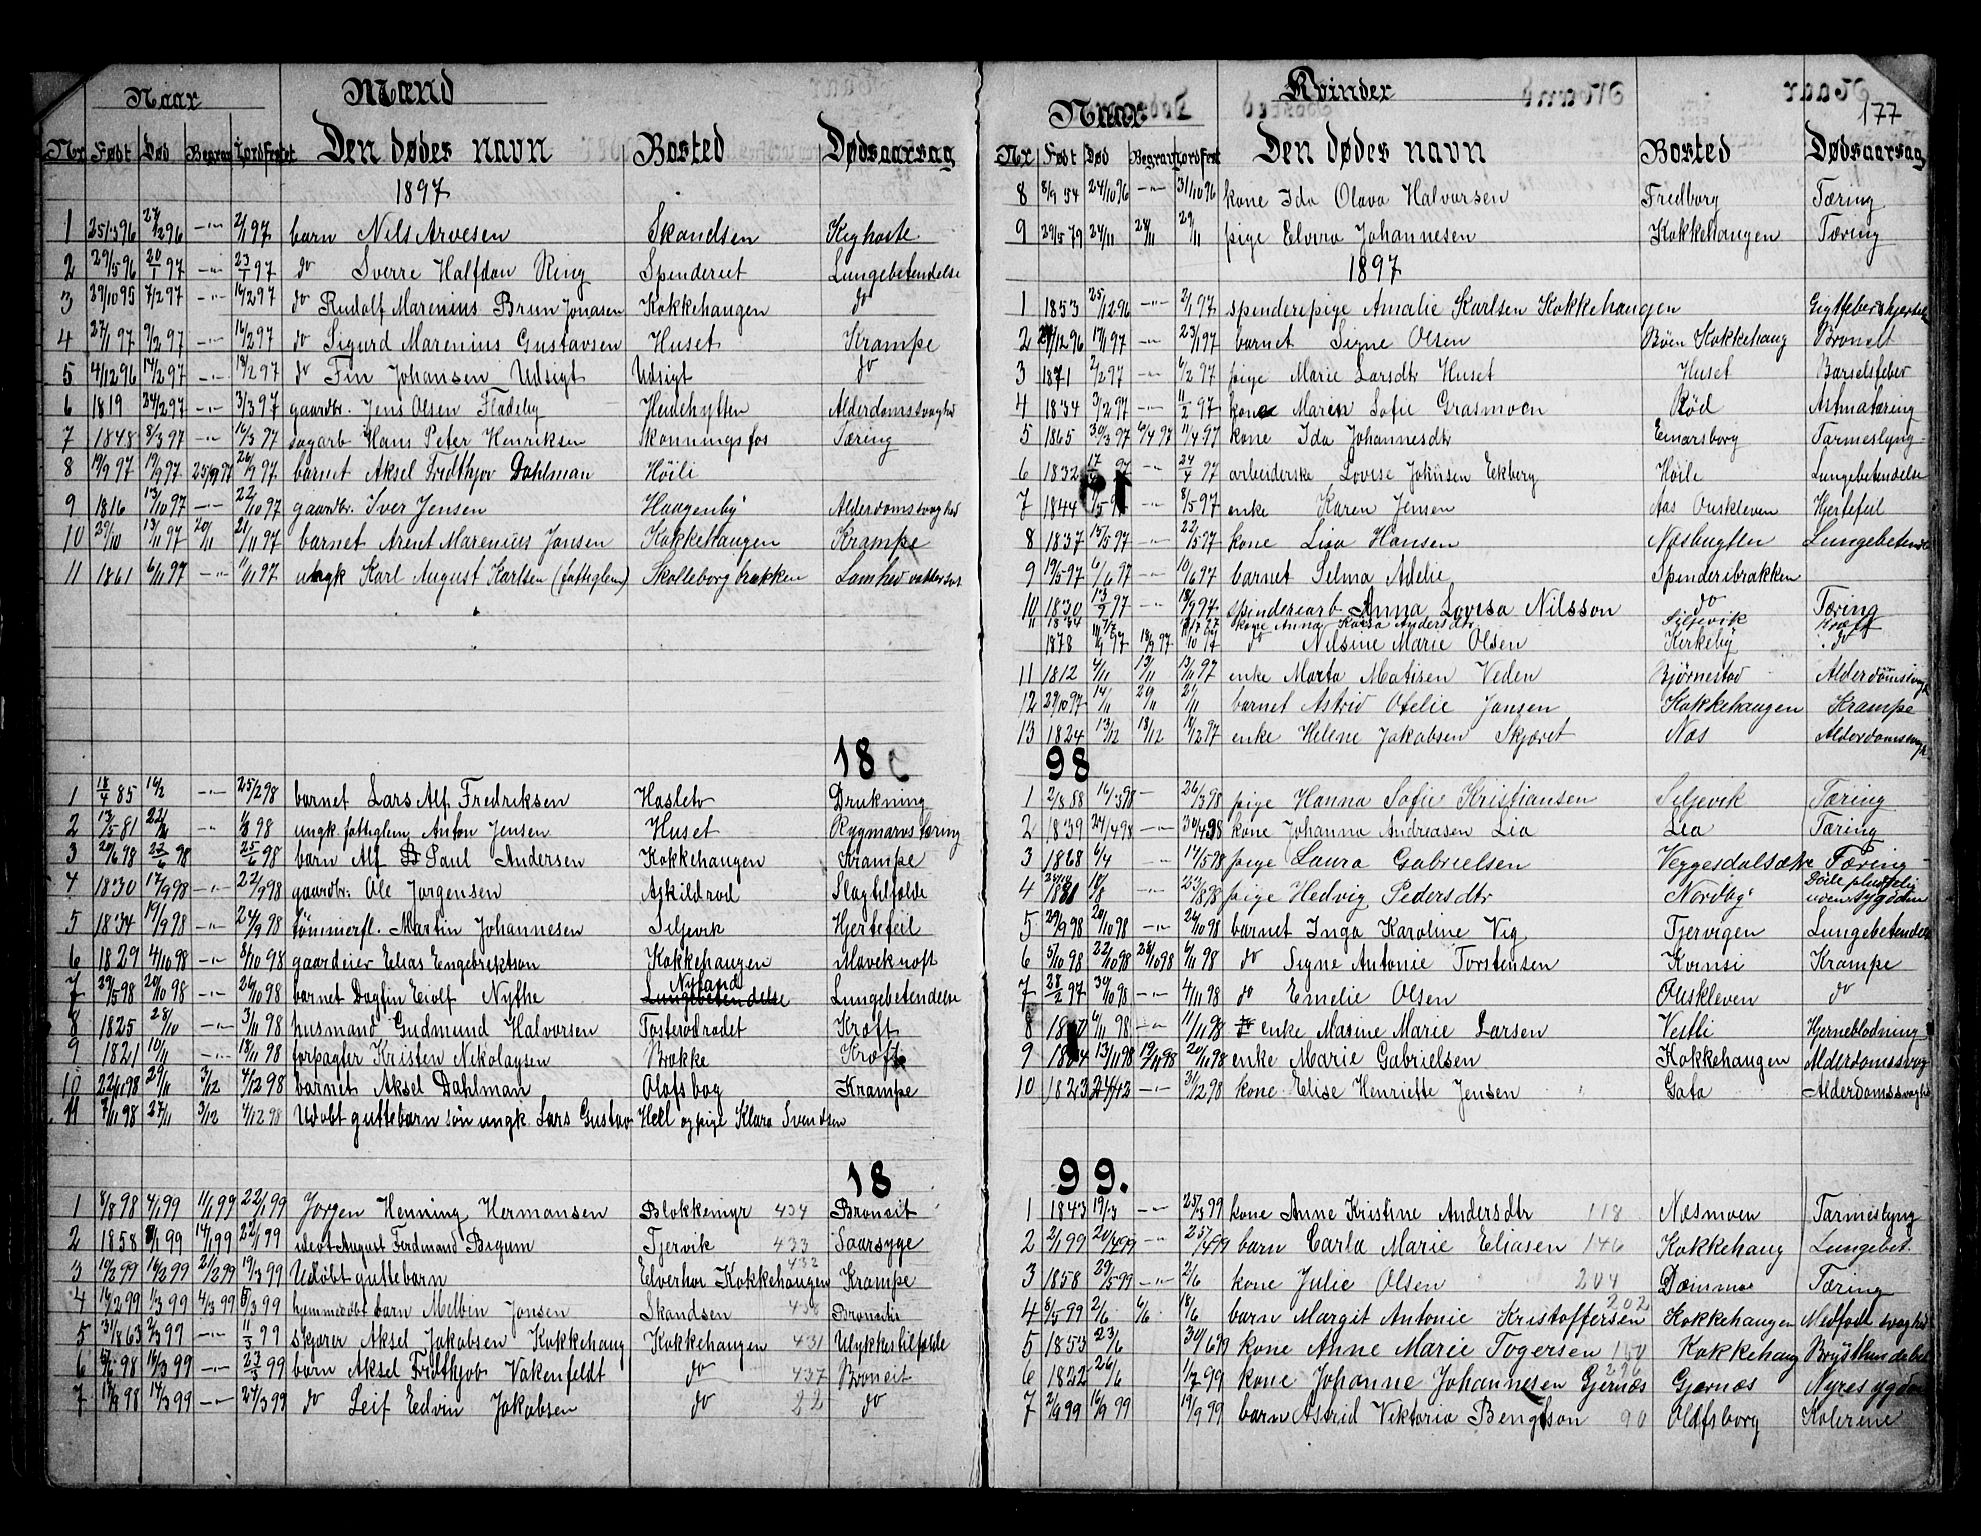 Naar Mænd
Nr Født Død Begrav Jordfestet Den dødes navn Bosted Dødsaarsag
1897
1 25/3 96 27/12 96 -"- 2/1 97 barn Nils Arvesen Skandsen Kighoste
2 29/5 96 20/1 97 -"- 23/1 97 do Sverre Halfdan Ring Spenderiet Lungebetendelse
3 29/10 95 7/2 97 -"- 14/2 97 do Rudolf Marenius Brun Jonasen Kokkehaugen do
4 27/1 97 9/2 97 -"- 16/2 97 do Sigurd Marenius Gustavsen Huset Krampe
5 4/12 96 14/2 97 -"- 18/2 97 do Fin Johansen Udsigt Udsigt do
6 1819 24/2 97 -"- 3/3 97 gaardbr. Jens Olsen Fladeby Heidehytten Alderdomssvaghed
7 1848 8/3 97 -"- 16/3 97 sagarb Hans Peter Henriksen Skonningsfos Tæring
8 19/9 97 19/9 97 25/9 97 26/9 97 barnet Aksel Fredthjov Dahlman Höili
9 1816 13/10 97 -"- 22/10 97 gaardbr. Iver Jensen Haagenby Alderdomssvaghed
10 29/10 13/11 97 20/11 21/11 97 barnet Arent Marenius Jansen Kokkehaugen Krampe
11 1861 6/11 97 -"- 11/11 97 ungk Karl August Karlsen (fattiglem) Skolleborgbrakken Lamhed
18
1 18/4 85 16/2 -"- 25/2 98 barnet Lars Alf Fredriksen Haslelv Drukning
2 13/5 81 -"- 98 ungk. fattiglem Anton Jensen Huset Rygmarvstæring
3 20/6 98 22/6 98 25/6 98 barn Alf Paul Andersen Kokkehaugen Krampe
4 1830 17/9 98 -"- 22/9 98 gaardbr. Ole Jørgensen Askildrød Slagtilfælde
5 1834 19/9 98 -"- 24/9 98 tömmerfl. Martin Johannesen Siljevik Hjertefeil
6 1829 4/10 98 -"- 8/10 98 gaardeier Elias Engebrektson Kokkehaugen Mavekræft
7 29/5 98 20/10 98 -"- 26/10 98 barnet Dagfin Eiolf Nyland Lungebetendelse Lungebetendelse
8 1825 28/10 -"- 3/11 98 husmand Gudmund Halvorsen Tosterødrødet Kræft
9 1821 10/11 -"- 18/11 98 forpagter Kristen Nikolaysen Brække Kræft
10 22/11 98 29/11 3/12 4/12 98 barnet Aksel Dahlman Olafsbog Krampe
11 98 27/11 3/12 4/12 98 Udöbt guttebarn sön ungk. Lars Gustav Hell og pige Klara Svendsen
18
1 8/8 98 4/1 99 11/1 99 22/1 99 Jørgen Henning Hermansen Blokkemyr 434 Bronsit
2 1858 99 14/1 99 22/1 99 August Ferdinand Bigum Tjervik 433 Saarsyge
3 10/2 99 16/2 99 21/2 99 19/3 99 Udöbt guttebarn Elverhoi Kokkehaugen 432 Krampe
4 16/2 99 1/3 99 4/3 99 5/3 99 hjemmedöbt barn Melbin Jonsen Skandsen 438 Bronchit
5 31/8 63 2/3 99 -"- 11/3 99 skjærer Aksel Jakobsen Kokkehaug Kokkehaugen 431 Ulykkestilfælde
6 98 16/3 99 -"- 23/3 99 barn Aksel Fredthjob Vakenfeldt do 437 Bronsit
7 98 14/3 99 -"- 24/3 99 do Leif Edvin Jakobsen do 22 do
Naar Kvinder 177
Nr Født Død Begrav Jordfest Den dødes navn Bosted Dødsaarsag
8 8/9 54 24/10 96 -"- 31/10 96 kone Ida Olava Halvorsen Fredborg Tæring
9 29/5 79 24/11 28/11 29/11 pige Elvira Johannesen Kokkehaugen Tæring
1897
1 1853 25/12 96 -"- 2/1 97 spenderipige Amalie Karlsen Kokkehaugen Gigtfeber
2 12 96 17/1 97 -"- 23/1 97 barnet Signe Olsen Bøen Kokkehaug Bronsit
3 1871 2/2 97 -"- 6/2 97 pige Marie Larsdtr Huset Huset Barselfeber
4 1834 3/2 97 -"- 11/2 97 kone Maren Sofie Grasmoen Rød Astmatæring
5 1865 30/3 97 6/4 97 11/4 97 kone Ida Johannesdtr Emarsborg Tarmeslyng
6 1832 17 97 -"- 24/4 97 arbeiderske Lovise Johnsen Ekberg Höile Lungebetendelse
7 1844 -"- 8/5 97 enke Karen Jensen Aas Ouskleven Hjertefeil
8 1837 15/5 97 -"- 22/5 97 kone Lisa Hansen Næsbugten Lungebetendelse
9 19/5 97 6/6 97 -"- 10/6 97 barnet Selma Adelie Spenderibrakken
10 1830 13/9 97 -"- 18/9 97 spinderiarb Anna Lovisa Nilsson do Tæring
11 1834 kone Anna Kaisa Andersdtr Siljevik Kræft
1878 97 18/9 97 97 do Nilsine Marie Olsen Kirkeby do
11 1812 4/11 13/11 13/11 97 enke Marta Matisen Veden Bjørnestad Alderdomssvagh
12 29/10 97 14/11 20/11 21/11 barnet Astrid Otelie Jansen Kokkehaugen Krampe
13 1824 13/12 18/12 18/12 97 enke Helene Jakobsen Skjæret Næs Alderdomssvagh
98
1 2/8 88 16/3 98 - 26/3 98 pige Hanna Sofie Kristiansen Siljevik Tæring
2 1839 24/4 98 -"- 30/4 98 kone Johanna Andreasen Lia Lia Tæring
3 1868 6/4 -"- 14/5 98 pige Laura Gabrielsen Veggesdalsætre Tæring
4 18/8 -"- 23/8 98 pige Hedvig Pedersdtr Nordby Döde pludselig uden sygdom
5 29/9 98 20/10 98 -"- 26/10 98 barnet Inga Karoline Vig Tjervigen Lungebetendels
6 5/10 98 22/10 98 28/10 98 6/11 98 do Signe Antonie Torstensen Kornsi Krampe
7 28/2 97 30/10 98 -"- 4/11 98 do Emelie Olsen Ouskleven do
8 6/11 98 -"- 11/11 98 enke Maxine Marie Larsen Veitli Hjerneblödning
9 13/11 98 19/11 98 20/11 98 enke Marie Gabrielsen Kokkehaugen Alderdomssvag
10 1823 24/12 31/12 98 kone Elise Henriette Jensen Gata Alderdomssvaghed
99.
1 1843 19/3 -"- 25/3 99 kone Anne Kristine Andersdtr 118 Næsmoen Tarmeslyng
2 2/1 99 20/4 99 -"- 25/4 99 barn Carla Marie Eliasen 146 Kokkehaug Lungebet.
3 1858 29/5 99 -"- 2/6 kone Julie Olsen 204 Dæmma Tæring
4 8/5 99 2/6 6/6 18/6 barn Margit Antonie Kristoffersen 202 Kokkehaugen Medfödt svaghed
5 1853 23/6 30/6 99 kone Anne Marie Togersen Kokkehaug Brysthindebet
6 1822 26/6 1/7 99 kone Johanne Johannesen Gjernæs 236 Gjærnæs Nyresygdom
7 2/9 99 16/9 99 19/9 99 barn Astrid Viktoria Bengtson 90 Olafsborg Kolerine